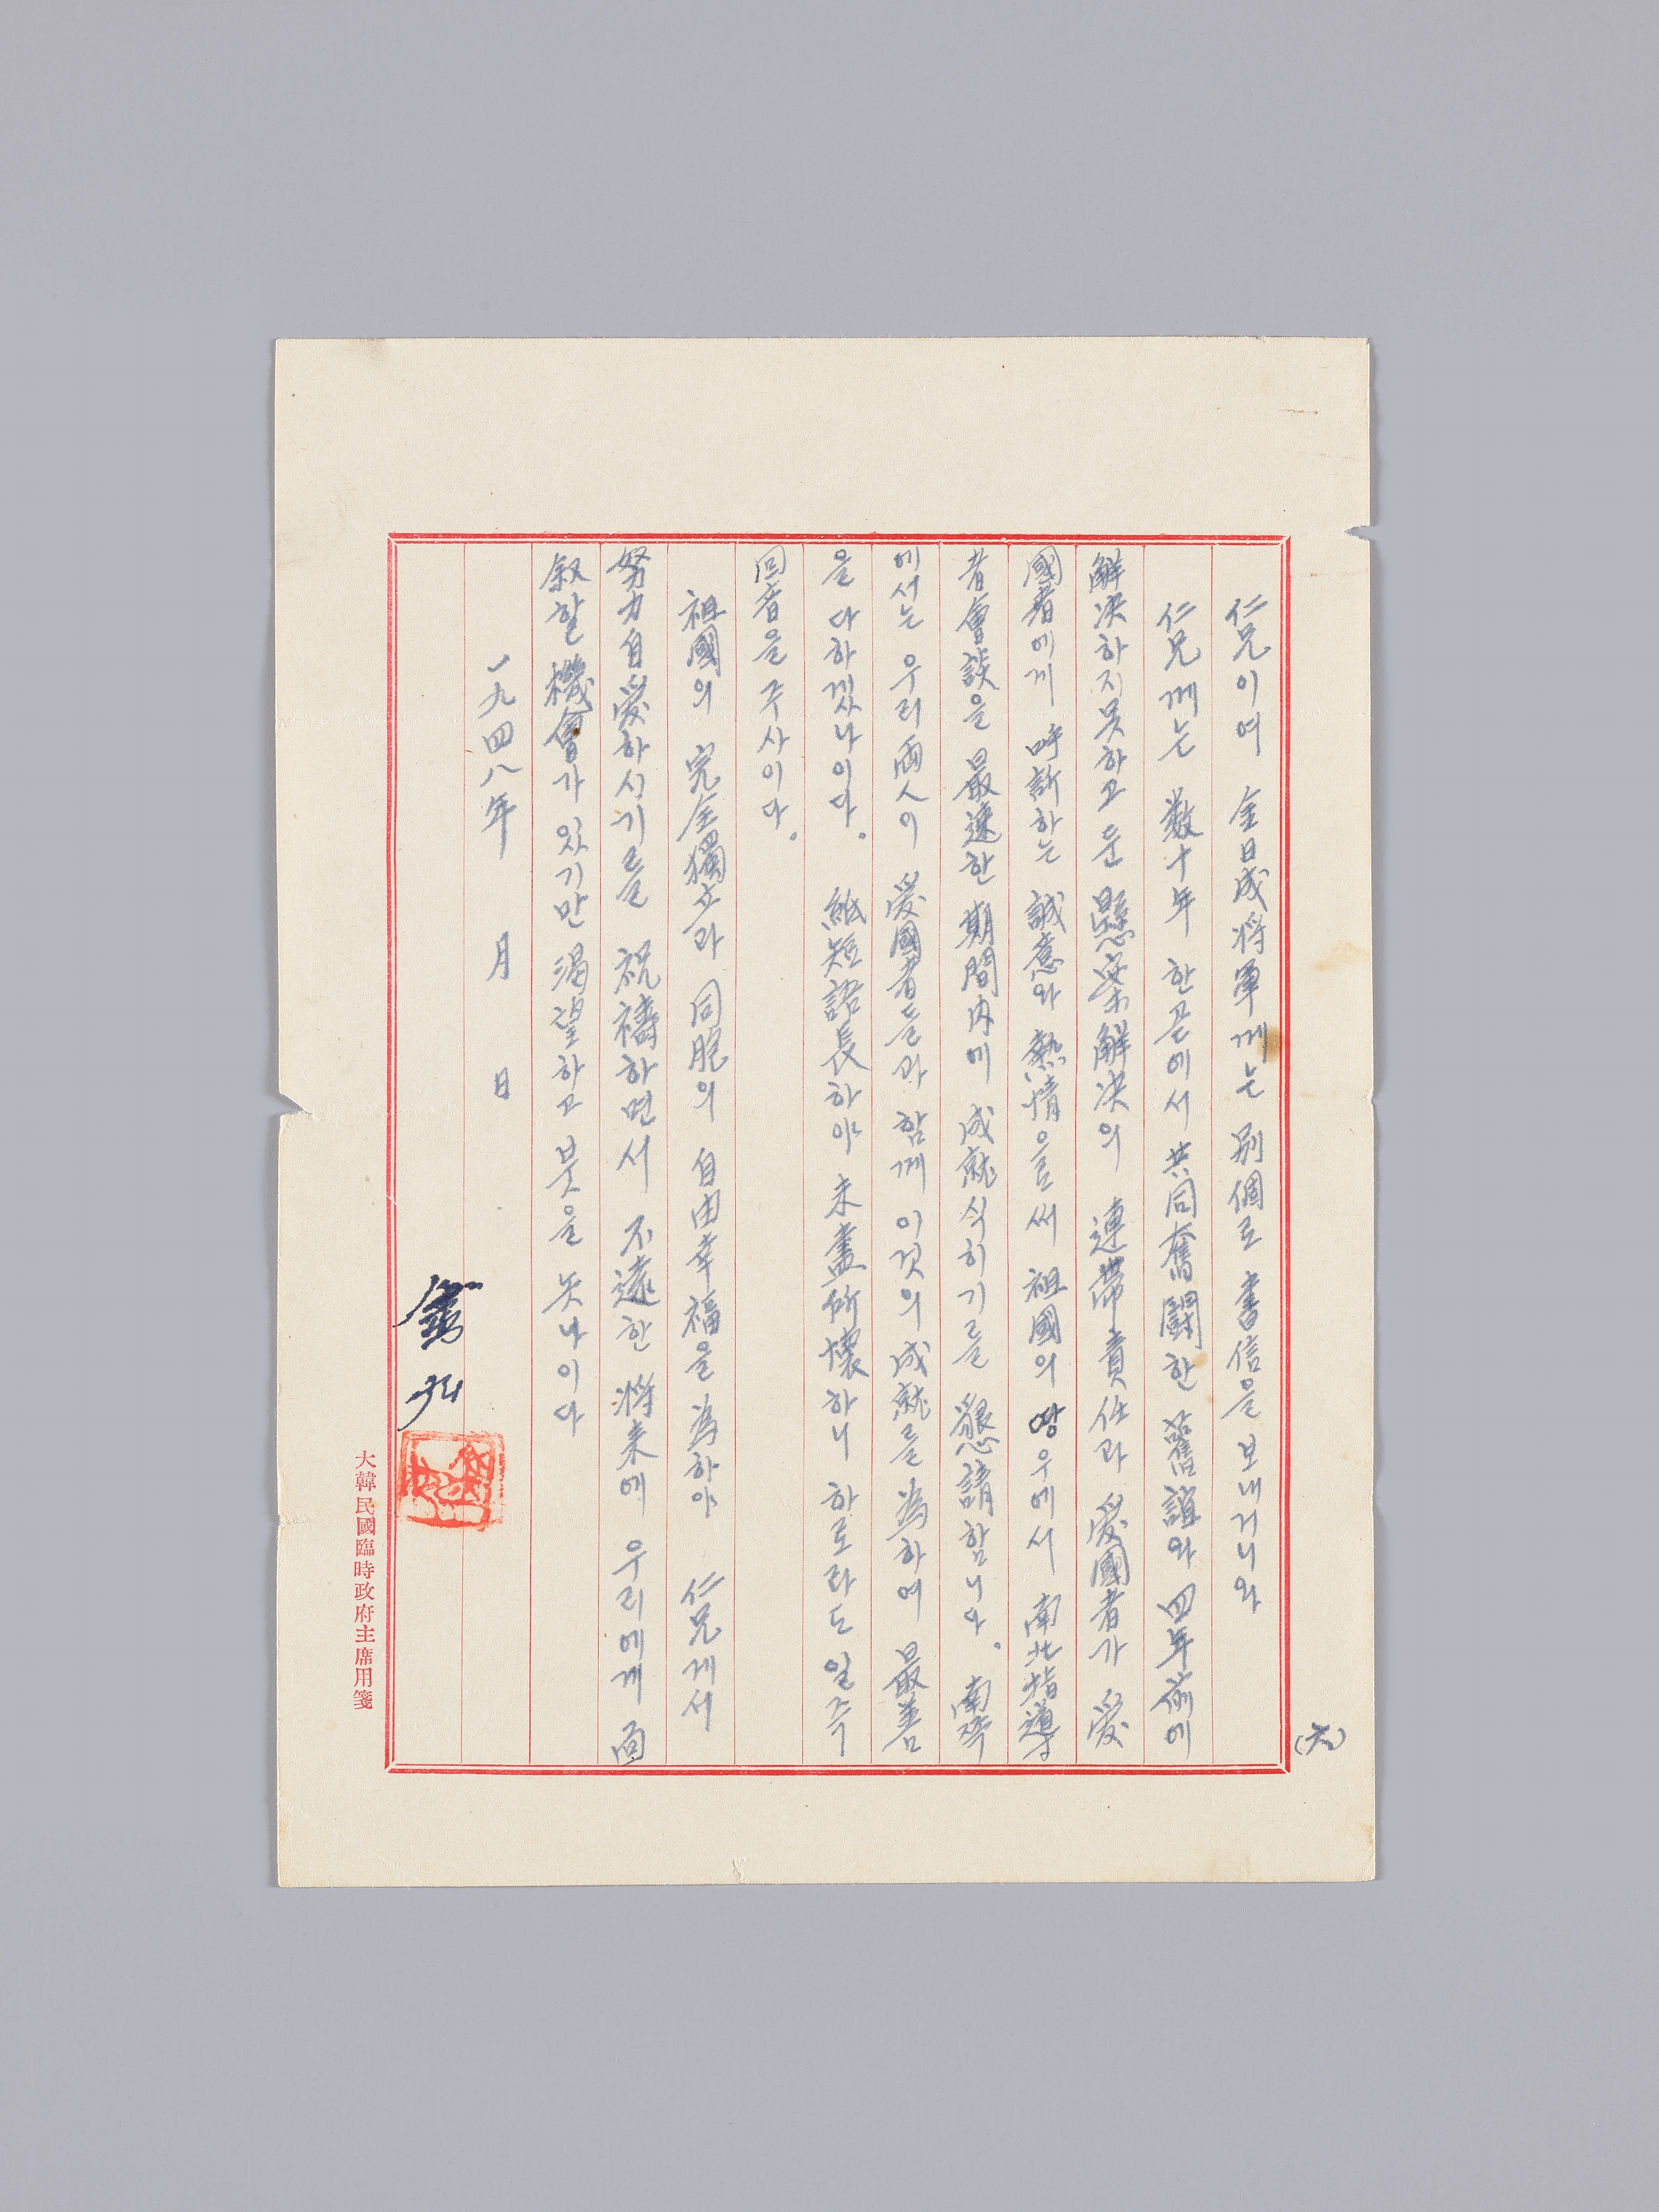 (六)
仁兄이여 金日成將軍께는 別個로 書信을 보내거니와
仁兄께는 數十年 한곧에서 共同奮鬪한 舊誼와 四年前에
解決하지못하고 둔 懸案解決의 連帶責任과 愛國者가 愛
國者에게 呼訴하는 誠意와 熱情으로써 祖國의 땅우에서 南北指導
者會談을 最速한 期間內에 成就식히기를 懇請합니다。南쪽
에서는 우리 兩人이 愛國者들과 함께 이것의 成就를 爲하여 最善
을 다하겠나이다。 紙短語長하야 未盡所懷하니 하로라도 일즉
回音을 주사이다。
祖國의 完全獨立과 同胞의 自由幸福을 爲하야 仁兄게서
努力自愛하시기를 祝禱하면서 不遠한 將來에 우리에게 面
叙할 機會가 있기만 渴望하고 붓을 놋나이다
一九四八年 月 日
大韓民國臨時政府主席用箋